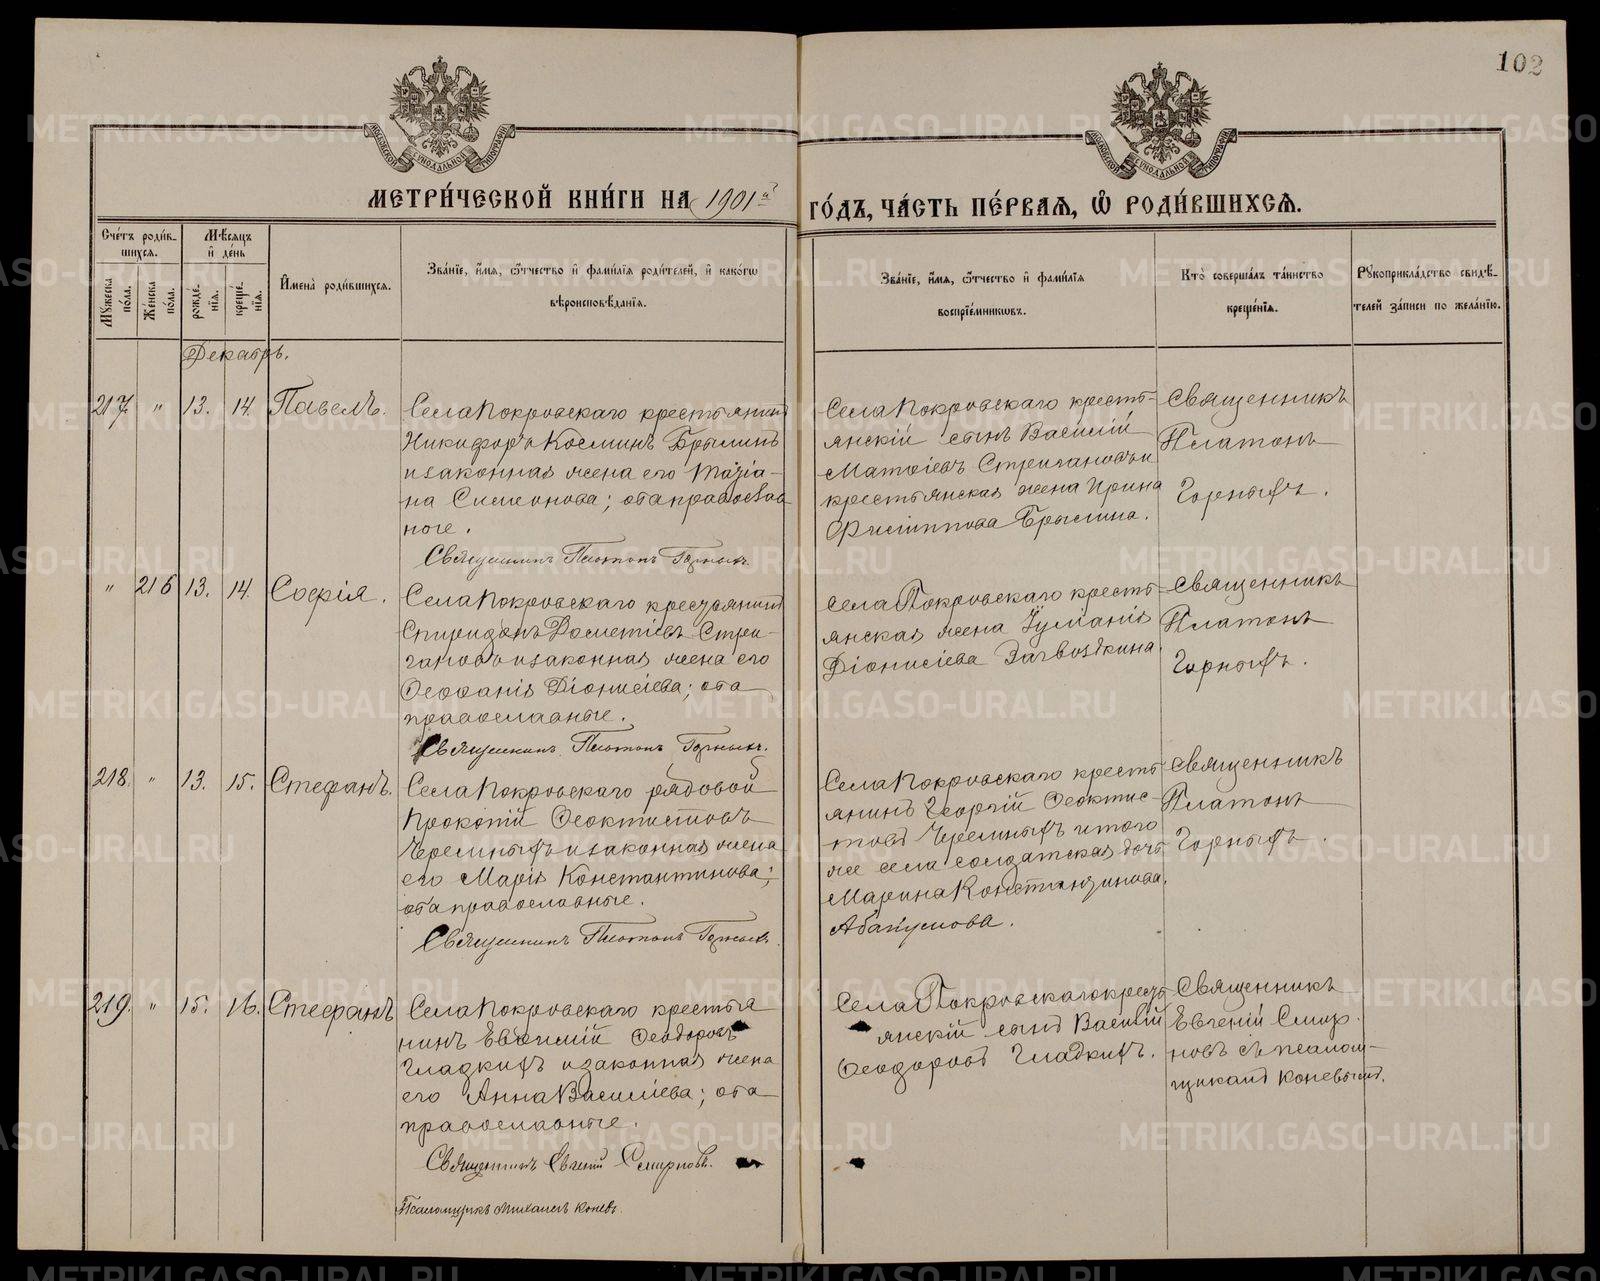 102
МОСКОВСКОЙ СѴНОДАЛЬНОЙ ТИПОГРАФІИ
МОСКОВСКОЙ СѴНОДАЛЬНОЙ ТИПОГРАФІИ
МЕТРИ́ЧЕСКОЙ КНИ́ГИ НА 1901й ГО́ДЪ, ЧА́СТЬ ПЕ́РВАѦ, Ѡ РОДИ́ВШИХСѦ.
Сче́тъ роди́в-
шихся.
Мѣ́сяцъ
и҆ де́нь
Мꙋжеска по́ла.
Же́нска по́ла.
рожде́нїѧ.
креще́нїѧ.
И҆мена̀ роди́вшихсѧ.
Зва́нїе, и҆́мѧ, ѻ҆́тчество и҆ фами́лїѧ роди́телей, и҆ како́гѡ
вѣроисповѣ́данїѧ.
Зва́нїе, и҆́мѧ, ѻ҆́тчество и҆ фами́лїѧ
воспрїе́мникѡвъ.
Кто̀ соверша́лъ та́инство
креще́нїѧ.
Рꙋкоприкла́дство свидѣ́-
телей за́писи по жела́нїю.
Декабрь.
217. " 13. 14. Павелъ.
Села Покровскаго крестьянинъ
Никифоръ Космин Брылинъ
и законная жена его Татіа-
на Симеонова; оба православ
ные.
Священникъ Платонъ Горныхъ.
Села Покровскаго кресть-
янскій сынъ Василій
Матѳіевъ Стригановъ и
крестьянская жена Ирина
Филиппова Брылина.
Священникъ
Платонъ
Горныхъ.
" 216 13. 14. Софія.
Села Покровскаго крестьянинъ
Спиридонъ Дометіевъ Стри-
гановъ и законная жена его
Ѳеофанія Діонисіева; оба
православные.
Священникъ Платонъ Горныхъ.
Села Покровскаго кресть-
янская жена Іуліанія
Діонисіева Загвоздкина.
Священникъ
Платонъ
Горныхъ.
218. " 13. 15. Стефанъ.
Села Покровскаго рядовой
Прокопій Ѳеоктистовъ
Черемныхъ и законная жена
его Марія Константинова;
оба православные.
Священникъ Платонъ Горныхъ.
Села Покровскаго кресть
янинъ Георгій Ѳеоктис-
товъ Черемныхъ и того
же села солдатская дочь
Марина Константинова
Абакумова.
Священникъ
Платонъ
Горныхъ.
219. " 15. 16. Стефанъ
Села Покровскаго крестья
нинъ Евѳимій Ѳеодоровъ
Гладкихъ и законная жена
его Анна Василіева; оба
православные.
Священникъ Евгеній Смирновъ.
Псаломщикъ Михаилъ Коневъ.
Села Покровскаго кресть
янскій сынъ Василій
Ѳеодоровъ Гладкихъ.
Священникъ
Евгеній Смир-
новъ съ псалом-
щикомъ Коневымъ.
METRIKI.GASO-URAL.RU